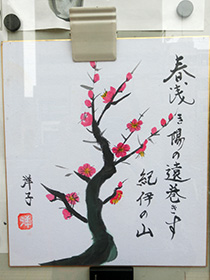 春浅き陽の遠巻きす
紀伊の山
洋子